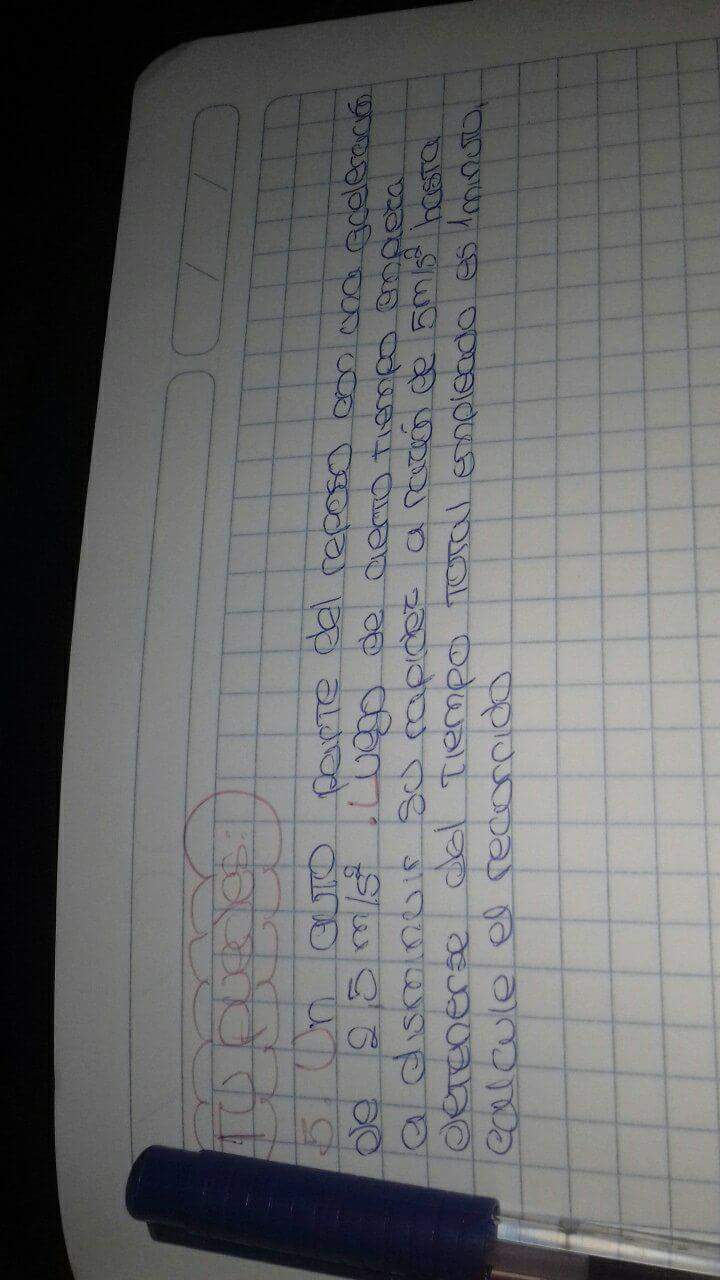 TU puedes:
5. Un auto parte del reposo con una aceleración
de 2,5 m/s². Luego de cierto tiempo empieza
a disminuir su rapidez a razón de 5m/s² hasta
detenerse del tiempo total empleado es 1minuto,
calcule el recorrido